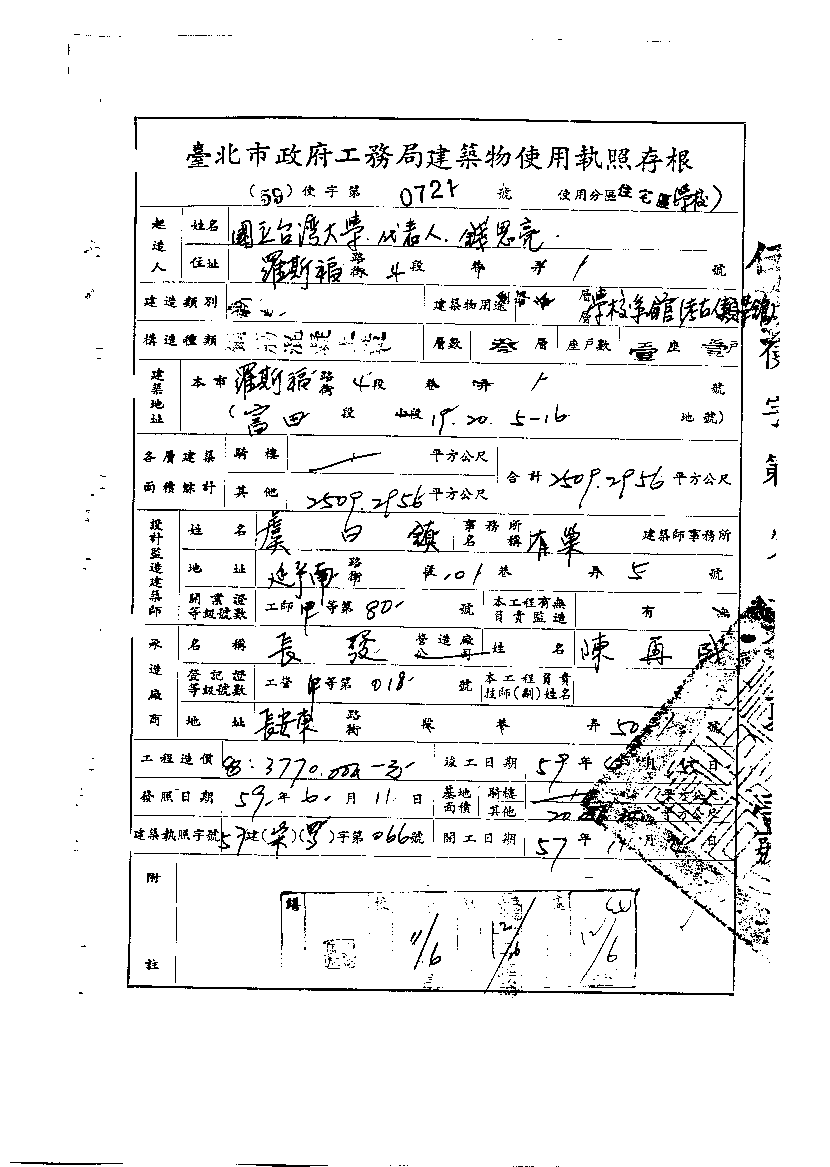 臺北市政府工務局建築物使用執照存根
(59) 使字第 0721 號 使用分區 住宅區(學校)
起造人 姓名 國立台灣大學 代表人 錢思亮
住址 羅斯福 路街 4 段 巷 弄 1 號
建造類別 建築物用途 層 層 學校系館
構造種類 鋼筋混凝土造 層數 叁 層 座戶數 壹 座 戶
建築地址 本市 羅斯福 路街 4 段 巷 弄 1 號
(富田 段 小段 19.20. 5-16 地號)
各層建築面積總計 騎樓 平方公尺 合計 2509.2956 平方公尺
其他 2509.2956 平方公尺
設計監造建築師 姓名 虞曰鎮 事務所名稱 有巢 建築師事務所
地址 延平南 路街 段 101 巷 弄 5 號
開業證等級號數 工師 甲 等第 80 號 本工程有無負責監造 有
承造廠商 名稱 長發 營造廠公司 姓名 陳再
登記證等級號數 工營 甲 等第 018 號 本工程負責技師(副)姓名
地址 長安東 路街 段 巷 弄 50 號
工程造價 竣工日期 59 年 月 日
發照日期 59 年 6 月 11 日 基地面積 騎樓 平方公尺
其他 平方公尺
建築執照字號 57 建( )( )字第 066 號 開工日期 57 年 月 日
附註
11/6 12/6 12/6